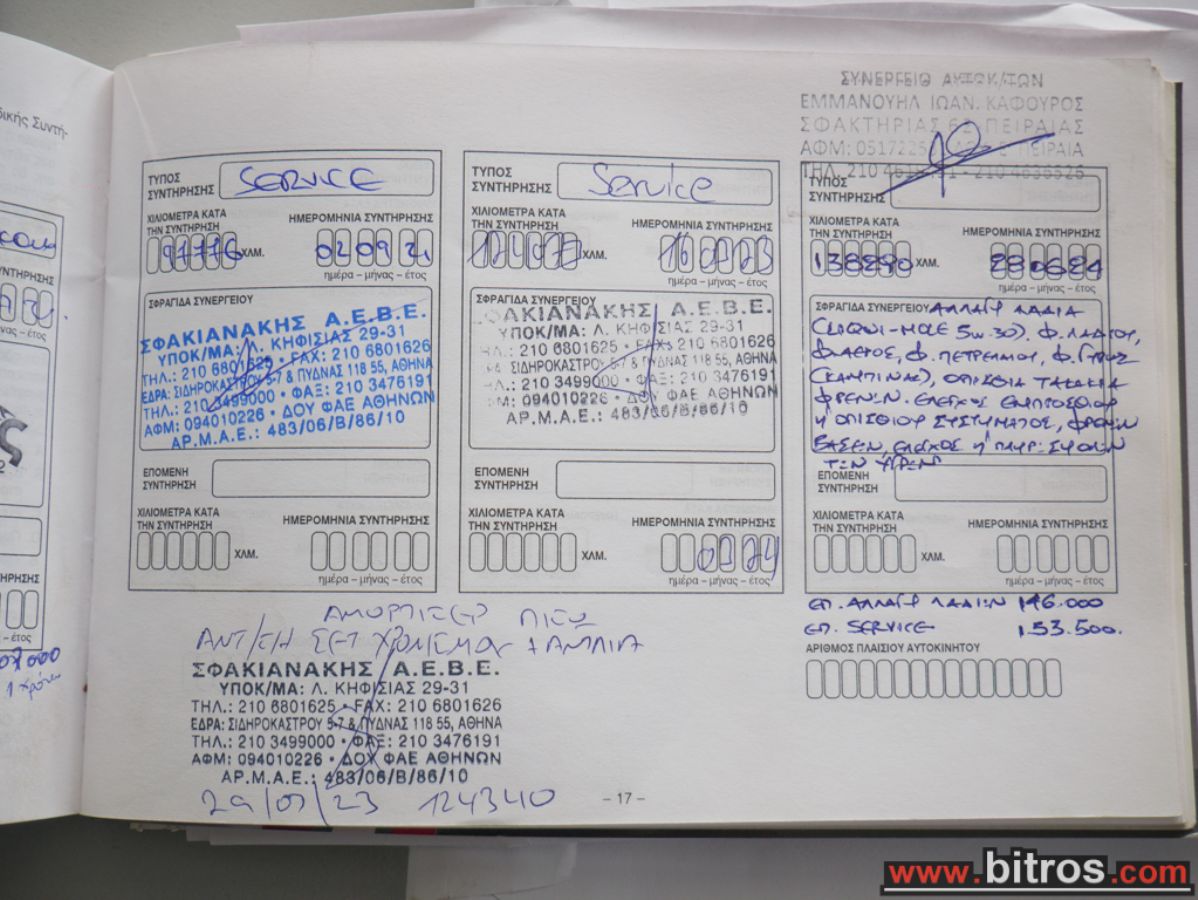 δικής Συντή-
ΤΥΠΟΣ
ΣΥΝΤΗΡΗΣΗΣ
SERVICE
ΧΙΛΙΟΜΕΤΡΑ ΚΑΤΑ
ΤΗΝ ΣΥΝΤΗΡΗΣΗ
ΗΜΕΡΟΜΗΝΙΑ ΣΥΝΤΗΡΗΣΗΣ
97776 ΧΛΜ.
02 09 21
ημέρα – μήνας – έτος
ΣΦΡΑΓΙΔΑ ΣΥΝΕΡΓΕΙΟΥ
ΣΦΑΚΙΑΝΑΚΗΣ Α.Ε.Β.Ε.
ΥΠΟΚ/ΜΑ: Λ. ΚΗΦΙΣΙΑΣ 29-31
ΤΗΛ.: 210 6801625 • FAX: 210 6801626
ΕΔΡΑ: ΣΙΔΗΡΟΚΑΣΤΡΟΥ 5-7 & ΠΥΔΝΑΣ 118 55, ΑΘΗΝΑ
ΤΗΛ.: 210 3499000 • ΦΑΞ: 210 3476191
ΑΦΜ: 094010226 • ΔΟΥ ΦΑΕ ΑΘΗΝΩΝ
ΑΡ.Μ.Α.Ε.: 483/06/Β/86/10
ΕΠΟΜΕΝΗ
ΣΥΝΤΗΡΗΣΗ
ΧΙΛΙΟΜΕΤΡΑ ΚΑΤΑ
ΤΗΝ ΣΥΝΤΗΡΗΣΗ
ΗΜΕΡΟΜΗΝΙΑ ΣΥΝΤΗΡΗΣΗΣ
ΧΛΜ.
ημέρα – μήνας – έτος
ΤΥΠΟΣ
ΣΥΝΤΗΡΗΣΗΣ
Service
ΧΙΛΙΟΜΕΤΡΑ ΚΑΤΑ
ΤΗΝ ΣΥΝΤΗΡΗΣΗ
ΗΜΕΡΟΜΗΝΙΑ ΣΥΝΤΗΡΗΣΗΣ
ΧΛΜ.
ημέρα – μήνας – έτος
ΣΦΡΑΓΙΔΑ ΣΥΝΕΡΓΕΙΟΥ
ΣΦΑΚΙΑΝΑΚΗΣ Α.Ε.Β.Ε.
ΥΠΟΚ/ΜΑ: Λ. ΚΗΦΙΣΙΑΣ 29-31
ΤΗΛ.: 210 6801625 • FAX: 210 6801626
ΕΔΡΑ: ΣΙΔΗΡΟΚΑΣΤΡΟΥ 5-7 & ΠΥΔΝΑΣ 118 55, ΑΘΗΝΑ
ΤΗΛ.: 210 3499000 • ΦΑΞ: 210 3476191
ΑΦΜ: 094010226 • ΔΟΥ ΦΑΕ ΑΘΗΝΩΝ
ΑΡ.Μ.Α.Ε.: 483/06/Β/86/10
ΕΠΟΜΕΝΗ
ΣΥΝΤΗΡΗΣΗ
ΧΙΛΙΟΜΕΤΡΑ ΚΑΤΑ
ΤΗΝ ΣΥΝΤΗΡΗΣΗ
ΗΜΕΡΟΜΗΝΙΑ ΣΥΝΤΗΡΗΣΗΣ
ΧΛΜ.
ημέρα – μήνας – έτος
ΣΥΝΕΡΓΕΙΟ ΑΥΤΟΚ/ΤΩΝ
ΕΜΜΑΝΟΥΗΛ ΙΩΑΝ. ΚΑΦΟΥΡΟΣ
ΣΦΑΚΤΗΡΙΑΣ ΠΕΙΡΑΙΑΣ
ΑΦΜ: ΠΕΙΡΑΙΑ
ΤΗΛ. 210
ΤΥΠΟΣ
ΣΥΝΤΗΡΗΣΗΣ
ΧΙΛΙΟΜΕΤΡΑ ΚΑΤΑ
ΤΗΝ ΣΥΝΤΗΡΗΣΗ
ΗΜΕΡΟΜΗΝΙΑ ΣΥΝΤΗΡΗΣΗΣ
ΧΛΜ.
28 06 24
ημέρα – μήνας – έτος
ΣΦΡΑΓΙΔΑ ΣΥΝΕΡΓΕΙΟΥ ΑΛΛΑΓΗ ΛΑΔΙΑ
5w.30). Φ. ΛΑΔΙΟΥ,
Φ. ΑΕΡΟΣ, Φ. ΠΕΤΡΕΛΑΙΟΥ, Φ. ΓΥΡΗΣ
(ΚΑΜΠΙΝΑΣ), ΟΠΙΣΘΙΑ ΤΑΚΑΚΙΑ
ΦΡΕΝΩΝ. ΕΛΕΓΧΟΣ ΕΜΠΡΟΣΘΙΟΥ
ΟΠΙΣΘΙΟΥ ΣΥΣΤΗΜΑΤΟΣ, ΦΡΕΝΩΝ
ΕΛΕΓΧΟΣ
ΤΩΝ ΥΓΡΩΝ
ΕΠΟΜΕΝΗ
ΣΥΝΤΗΡΗΣΗ
ΧΙΛΙΟΜΕΤΡΑ ΚΑΤΑ
ΤΗΝ ΣΥΝΤΗΡΗΣΗ
ΗΜΕΡΟΜΗΝΙΑ ΣΥΝΤΗΡΗΣΗΣ
ΧΛΜ.
ημέρα – μήνας – έτος
ΕΠ. ΑΛΛΑΓΗ ΛΑΔΙΩΝ 146.000
ΕΠ. SERVICE 153.500.
ΑΡΙΘΜΟΣ ΠΛΑΙΣΙΟΥ ΑΥΤΟΚΙΝΗΤΟΥ
ΑΜΟΡΤΙΣΕΡ ΠΙΣΩ
ΑΝΤ/ΣΗ ΣΕΤ
ΣΦΑΚΙΑΝΑΚΗΣ Α.Ε.Β.Ε.
ΥΠΟΚ/ΜΑ: Λ. ΚΗΦΙΣΙΑΣ 29-31
ΤΗΛ.: 210 6801625 • FAX: 210 6801626
ΕΔΡΑ: ΣΙΔΗΡΟΚΑΣΤΡΟΥ 5-7 & ΠΥΔΝΑΣ 118 55, ΑΘΗΝΑ
ΤΗΛ.: 210 3499000 • ΦΑΞ: 210 3476191
ΑΦΜ: 094010226 • ΔΟΥ ΦΑΕ ΑΘΗΝΩΝ
ΑΡ.Μ.Α.Ε.: 483/06/Β/86/10
124340
– 17 –
www.bitros.com